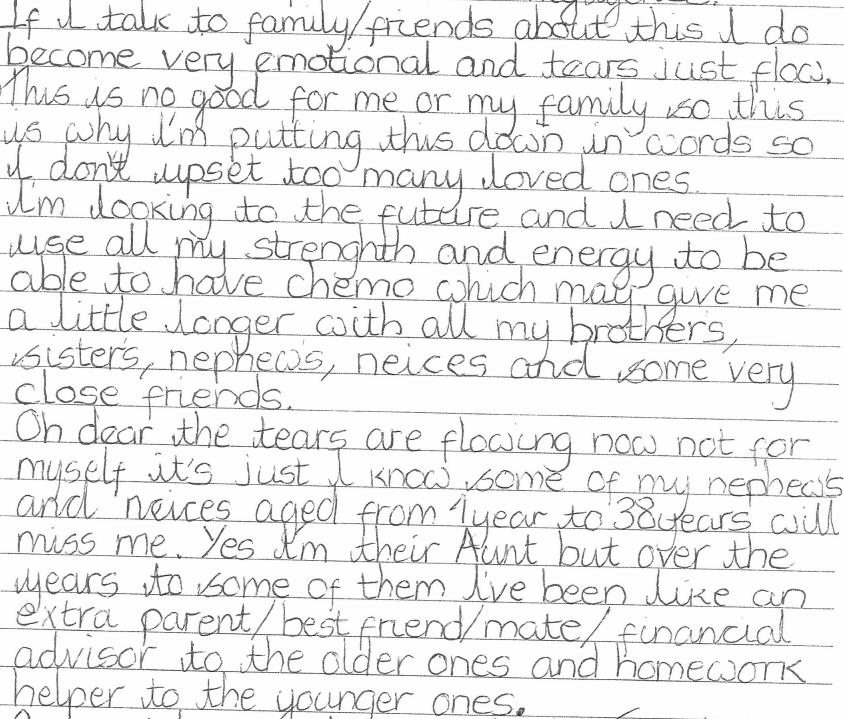 If I talk to family/friends about this I do
become very emotional and tears just flow.
This is no good for me or my family so this
is why I'm putting this down in words so
I don't upset too many loved ones.
I'm looking to the future and I need to
use all my strenghth and energy to be
able to have chemo which may give me
a little longer with all my brothers,
sisters, nephews, neices and some very
close friends.
Oh dear the tears are flowing now not for
myself it's just I know some of my nephews
and neices aged from 1year to 38years will
miss me. Yes I'm their Aunt but over the
years to some of them I've been like an
extra parent/best friend/mate/financial
advisor to the older ones and homework
helper to the younger ones.